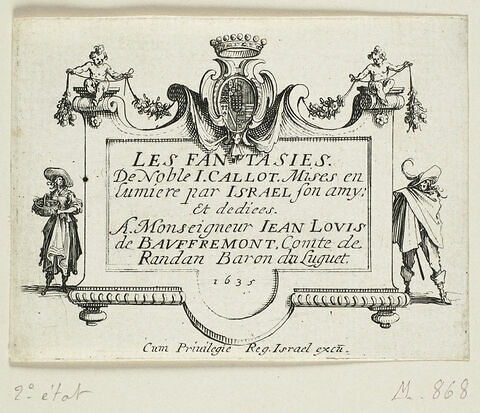 LES FANTASIES.
De Noble I. CALLOT. Mises en
lumiere par ISRAEL son amy:
Et dediees.
A. Monseigneur IEAN LOVIS
de BAVFFREMONT, Comte de
Randan Baron du Luguet.
1635
Cum Privilegie Reg. Israel excū.
2e état
M. 868